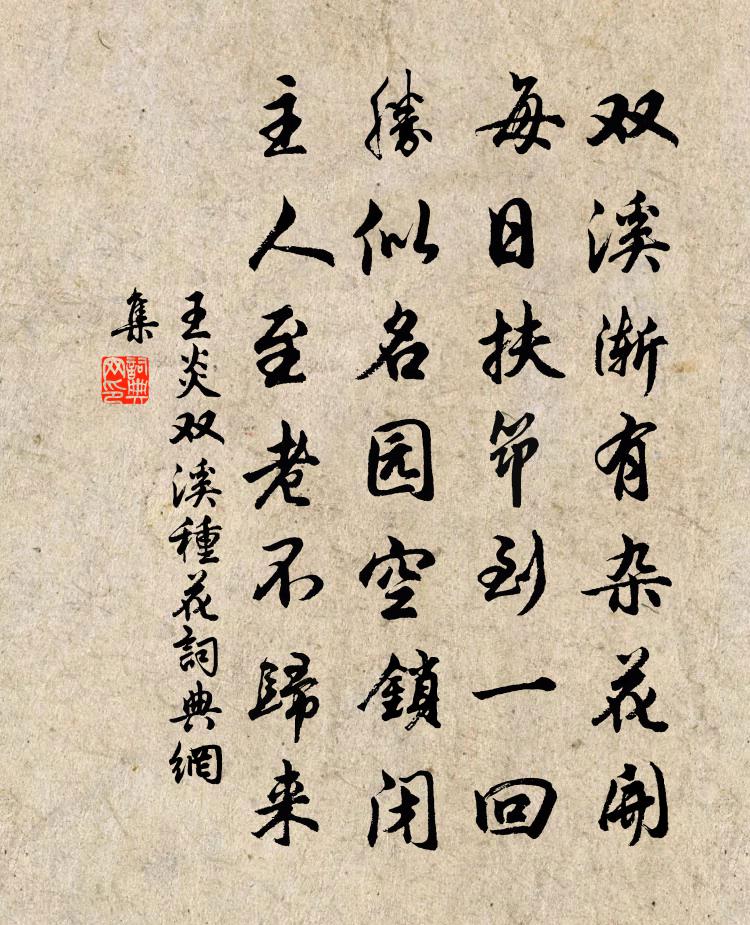 双溪渐有杂花開
每日扶笻到一回
勝似名园空鎖闭
主人至老不歸来
王炎双溪種花詞典網
集
詞典
网印